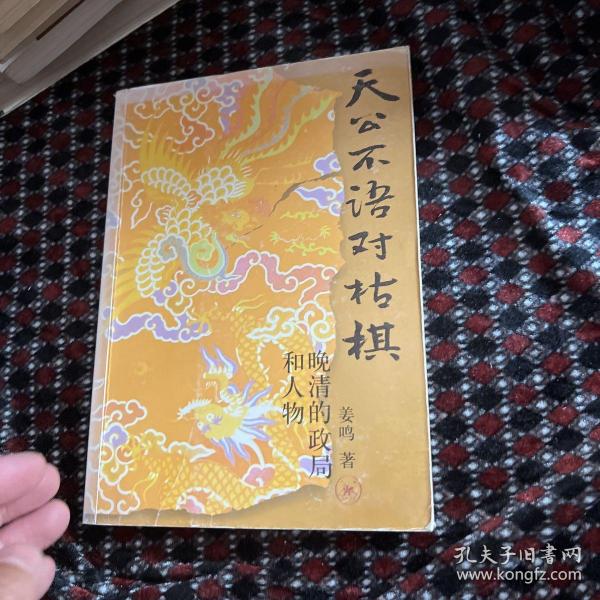 天公不语对枯棋
晚清的政局
和人物
姜鸣 著
孔夫子旧書网
www.kongfz.com